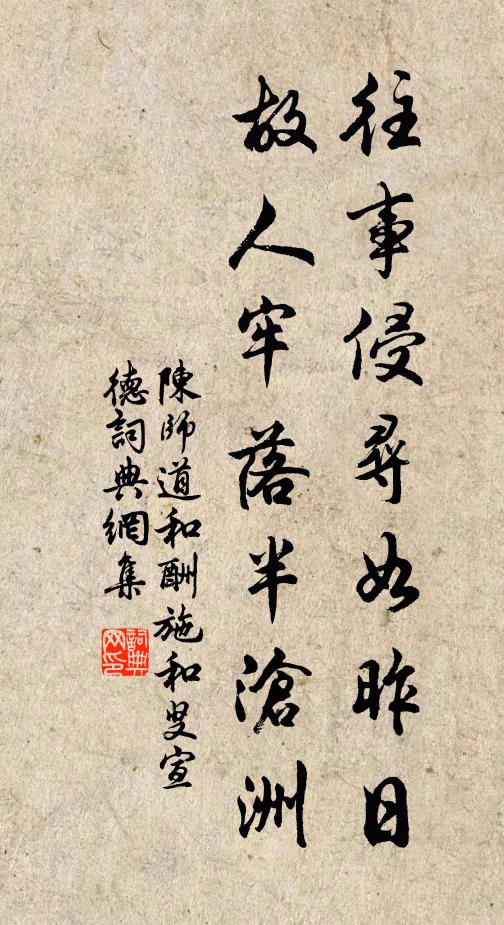 往事侵尋如昨日
故人牢落半滄洲
陳師道和酬施和叟宣
德詞典網集
詞典网印